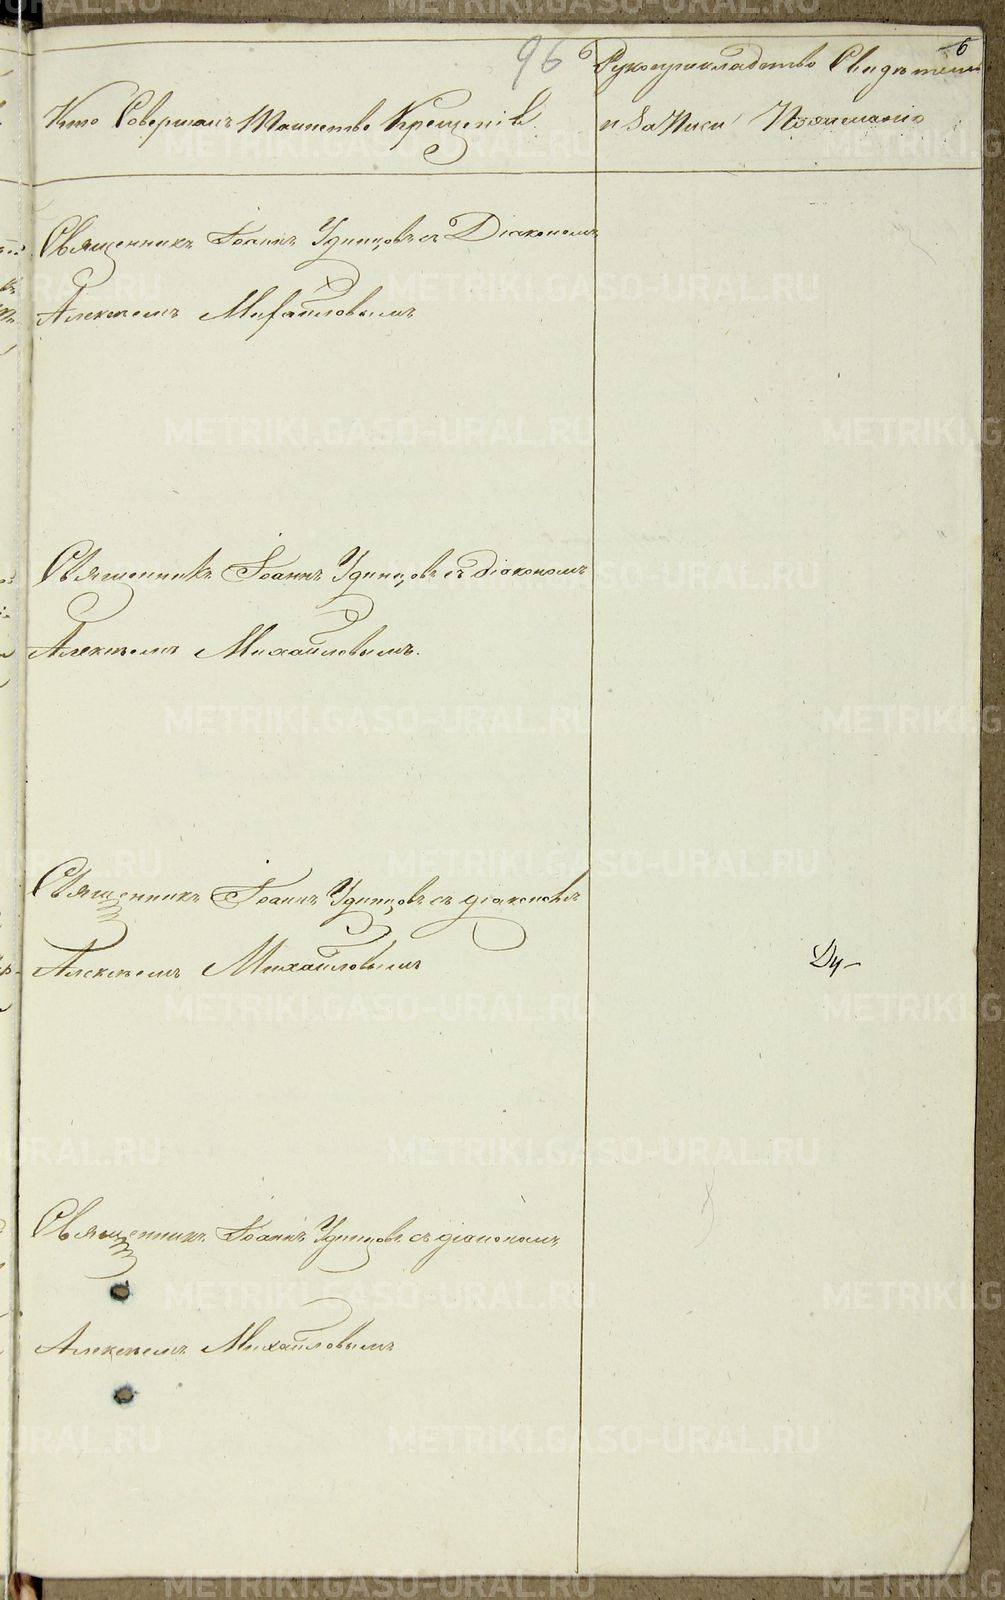 96 6
Рукоприкладство Свидѣтелей
Кто Совершалъ Таинство Крещенія
и Записи по желанію
Священникъ Іоаннъ Удинцовъ съ Діакономъ
Алексѣемъ Михайловымъ
Священникъ Іоаннъ Удинцовъ съ діакономъ
Алексѣемъ Михайловымъ.
Священникъ Іоаннъ Удинцовъ съ діакономъ
Алексѣемъ Михайловымъ
Ду-
Священникъ Іоаннъ Удинцовъ съ діакономъ
Алексѣемъ Михайловымъ
METRIKI.GASO-URAL.RU